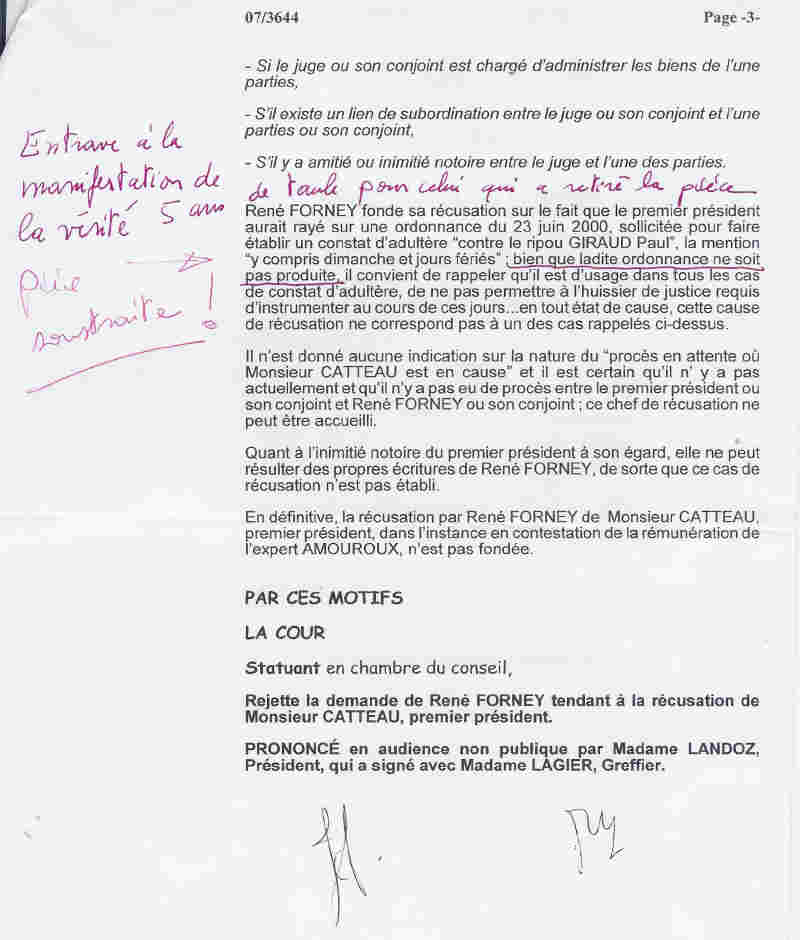 07/3644
Page -3-
- Si le juge ou son conjoint est chargé d'administrer les biens de l'une
parties,
- S'il existe un lien de subordination entre le juge ou son conjoint et l'une
parties ou son conjoint,
- S'il y a amitié ou inimitié notoire entre le juge et l'une des parties.
Entrave à la
manifestation de
la vérité 5 ans
de taule pour celui qui a retiré la pièce
pièce
soustraite !
René FORNEY fonde sa récusation sur le fait que le premier président
aurait rayé sur une ordonnance du 23 juin 2000, sollicitée pour faire
établir un constat d'adultère "contre le ripou GIRAUD Paul", la mention
"y compris dimanche et jours fériés" ; bien que ladite ordonnance ne soit
pas produite, il convient de rappeler qu'il est d'usage dans tous les cas
de constat d'adultère, de ne pas permettre à l'huissier de justice requis
d'instrumenter au cours de ces jours...en tout état de cause, cette cause
de récusation ne correspond pas à un des cas rappelés ci-dessus.
Il n'est donné aucune indication sur la nature du "procès en attente où
Monsieur CATTEAU est en cause" et il est certain qu'il n' y a pas
actuellement et qu'il n'y a pas eu de procès entre le premier président ou
son conjoint et René FORNEY ou son conjoint ; ce chef de récusation ne
peut être accueilli.
Quant à l'inimitié notoire du premier président à son égard, elle ne peut
résulter des propres écritures de René FORNEY, de sorte que ce cas de
récusation n'est pas établi.
En définitive, la récusation par René FORNEY de Monsieur CATTEAU,
premier président, dans l'instance en contestation de la rémunération de
l'expert AMOUROUX, n'est pas fondée.
PAR CES MOTIFS
LA COUR
Statuant en chambre du conseil,
Rejette la demande de René FORNEY tendant à la récusation de
Monsieur CATTEAU, premier président.
PRONONCÉ en audience non publique par Madame LANDOZ,
Président, qui a signé avec Madame LAGIER, Greffier.